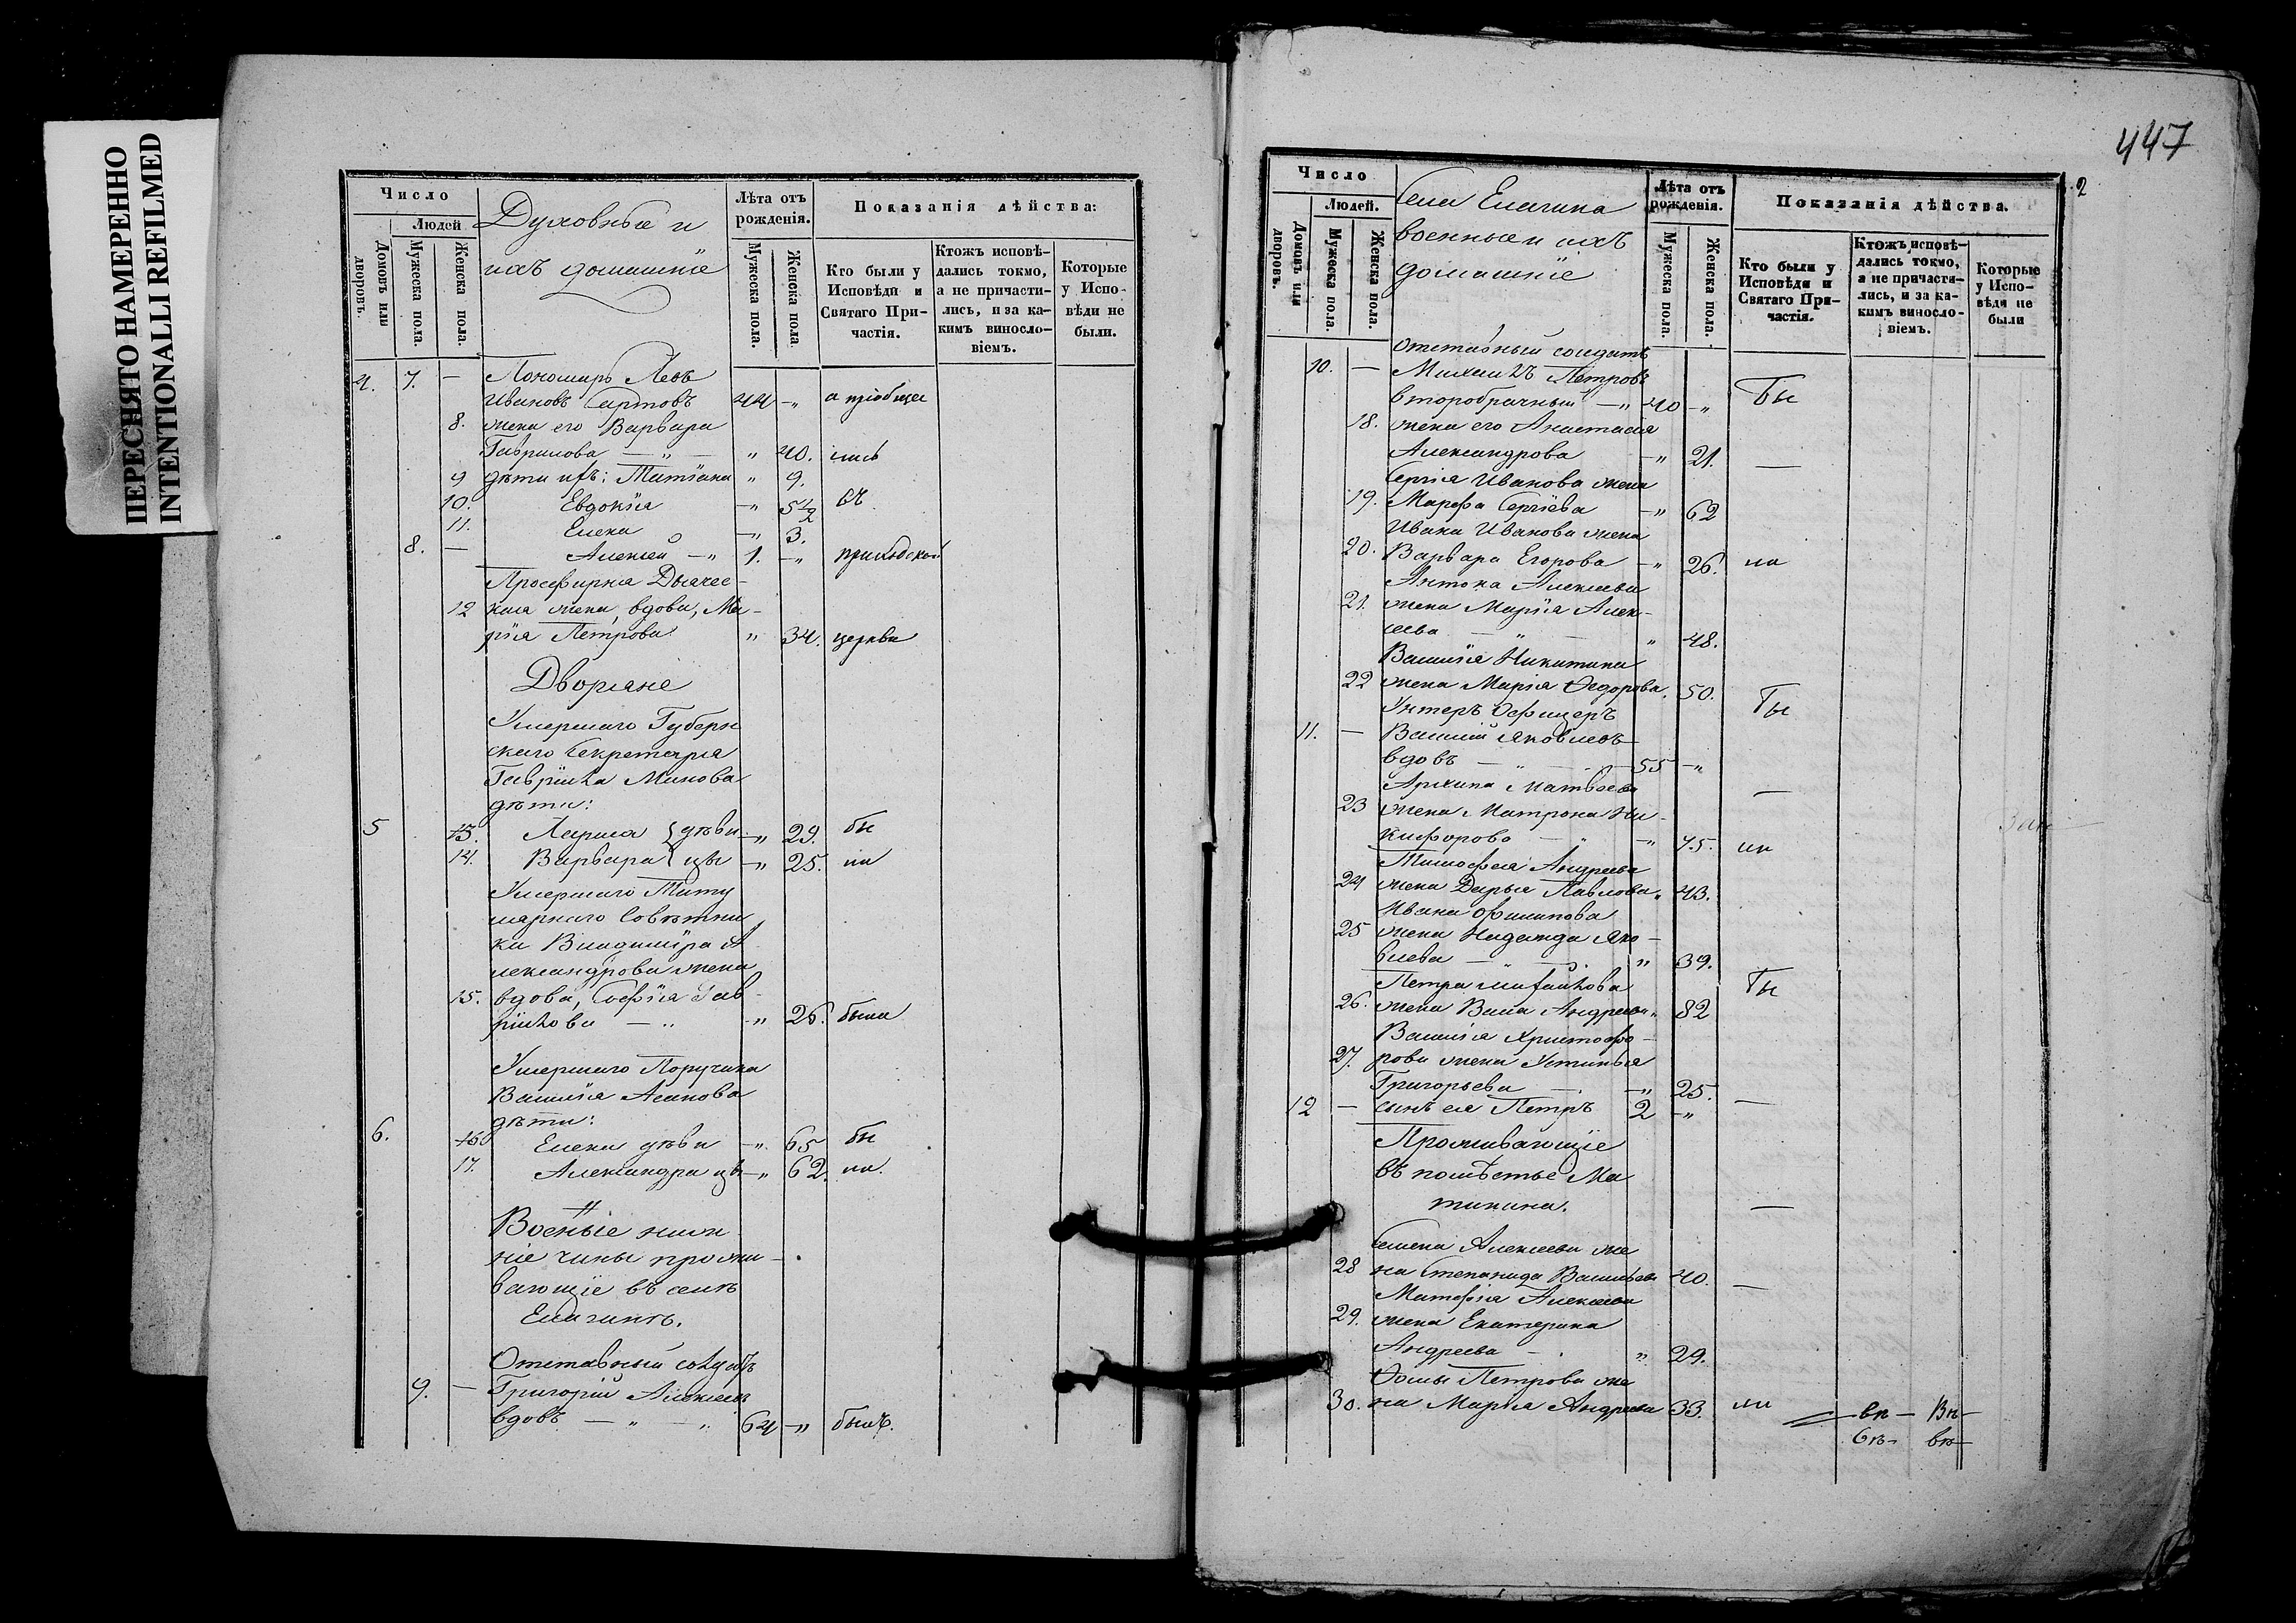 ПЕРЕСНЯТО НАМЕРЕННО
INTENTIONALLI REFILMED
Число
Людей
Домовъ или дворовъ.
Мужеска пола.
Женска пола.
Духовные и
ихъ домашніе
Лѣта отъ рожденія.
Мужеска пола.
Женска пола
Показанія дѣйства:
Кто были у Исповѣди и Святаго Причастія.
Ктожъ исповѣдались токмо, а не причастились, и за какимъ винословіемъ.
Которые у Исповѣди не были.
4. 7. — Пономарь Левъ
Ивановъ 44 —„ а пріобща
8. жена его Варвара
Гаврилова — „ „ 40. лись
9 дѣти ихъ: Татіана „ 9.
10. Евдокія —„ 5½ въ
11. Елена —„ 3.
8. — Алексей —„ 1. —„ приходской
Просфирня Дьячес-
12 кая жена, вдова, Ма-
рія Петрова „ 34. церкви
Дворяне
Умершаго Губерн
скаго Секретаря
Гавріила Минова
дѣти:
5 13. Лариса } дѣви —„ 29. бы
14. Варвара } цы —„ 25. ли
Умершаго Титу
лярнаго Совѣтни
ка Владиміра А
лександрова жена
15. вдова, Софія Гав-
ріилова — „ —„ 26. была
Умершаго Поручика
Василія Асанова
дѣти:
6. 16 Елена дѣви —„ 65 бы
17. Александра цы —„ 62. ли.
Военые ниж
ніе чины прожи-
вающіе въ селѣ
Елагинѣ.
Отставный солдатъ
9. — Григорій Алексеевъ
вдовъ — „ — „ 64 —„ былъ.
447
2
Число
Людей.
Домовъ или дворовъ.
Мужеска пола.
Женска пола.
Села Елагина
военные и ихъ
домашніе
Лѣта отъ рожденія.
Мужеска пола.
Женска пола.
Показанія дѣйства.
Кто были у Исповѣди и Святаго Причастія.
Ктожъ исповѣдались токмо, а не причастились, и за какимъ винословіемъ.
Которые у Исповѣди не были
отставный солдатъ
10. — Михаилъ Петровъ
второбрачный —„ 40 —„ Бы
18. жена его Анастасія
Александрова —„ 21. —
Сергія Иванова жена
19. Марфа Сергіева —„ 62
Ивана Иванова жена
20. Варвара Егорова —„ 26. ли
Антона Алексеева
21. жена Марія Алек-
сеева — „ — „ 48.
Василія Никитина
22 жена Марія Ѳедорова „ 50. Бы
Унтеръ Офицеръ
11. — Василій Яковлевъ
вдовъ — „ — 55 —„
Архипа Матвеева —
23 жена Матрона Ни-
кифорова — „ —„ 45. ли
Тимофея Андреева
24 жена Дарья Павлова „ 43.
Ивана Филипова
25 жена Надежда Яко-
влева — „ 39.
Петра Михайлова Бы
26. жена Васа Андреева „ 82
Василія Христофо-
27. рова жена Устинья
Григорьева — —„ 25.
12 — сынъ ея Петръ 2 —„ —
Проживающіе
въ помѣстье Ма
тикина. —
Семена Алексеева же
28 на Степанида Васильева 40. —
Матфія Алексеева
29. жена Екатерина
Андреева — „ 29.
Ѳомы Петрова же
30. на Марія Андреева 33. ли